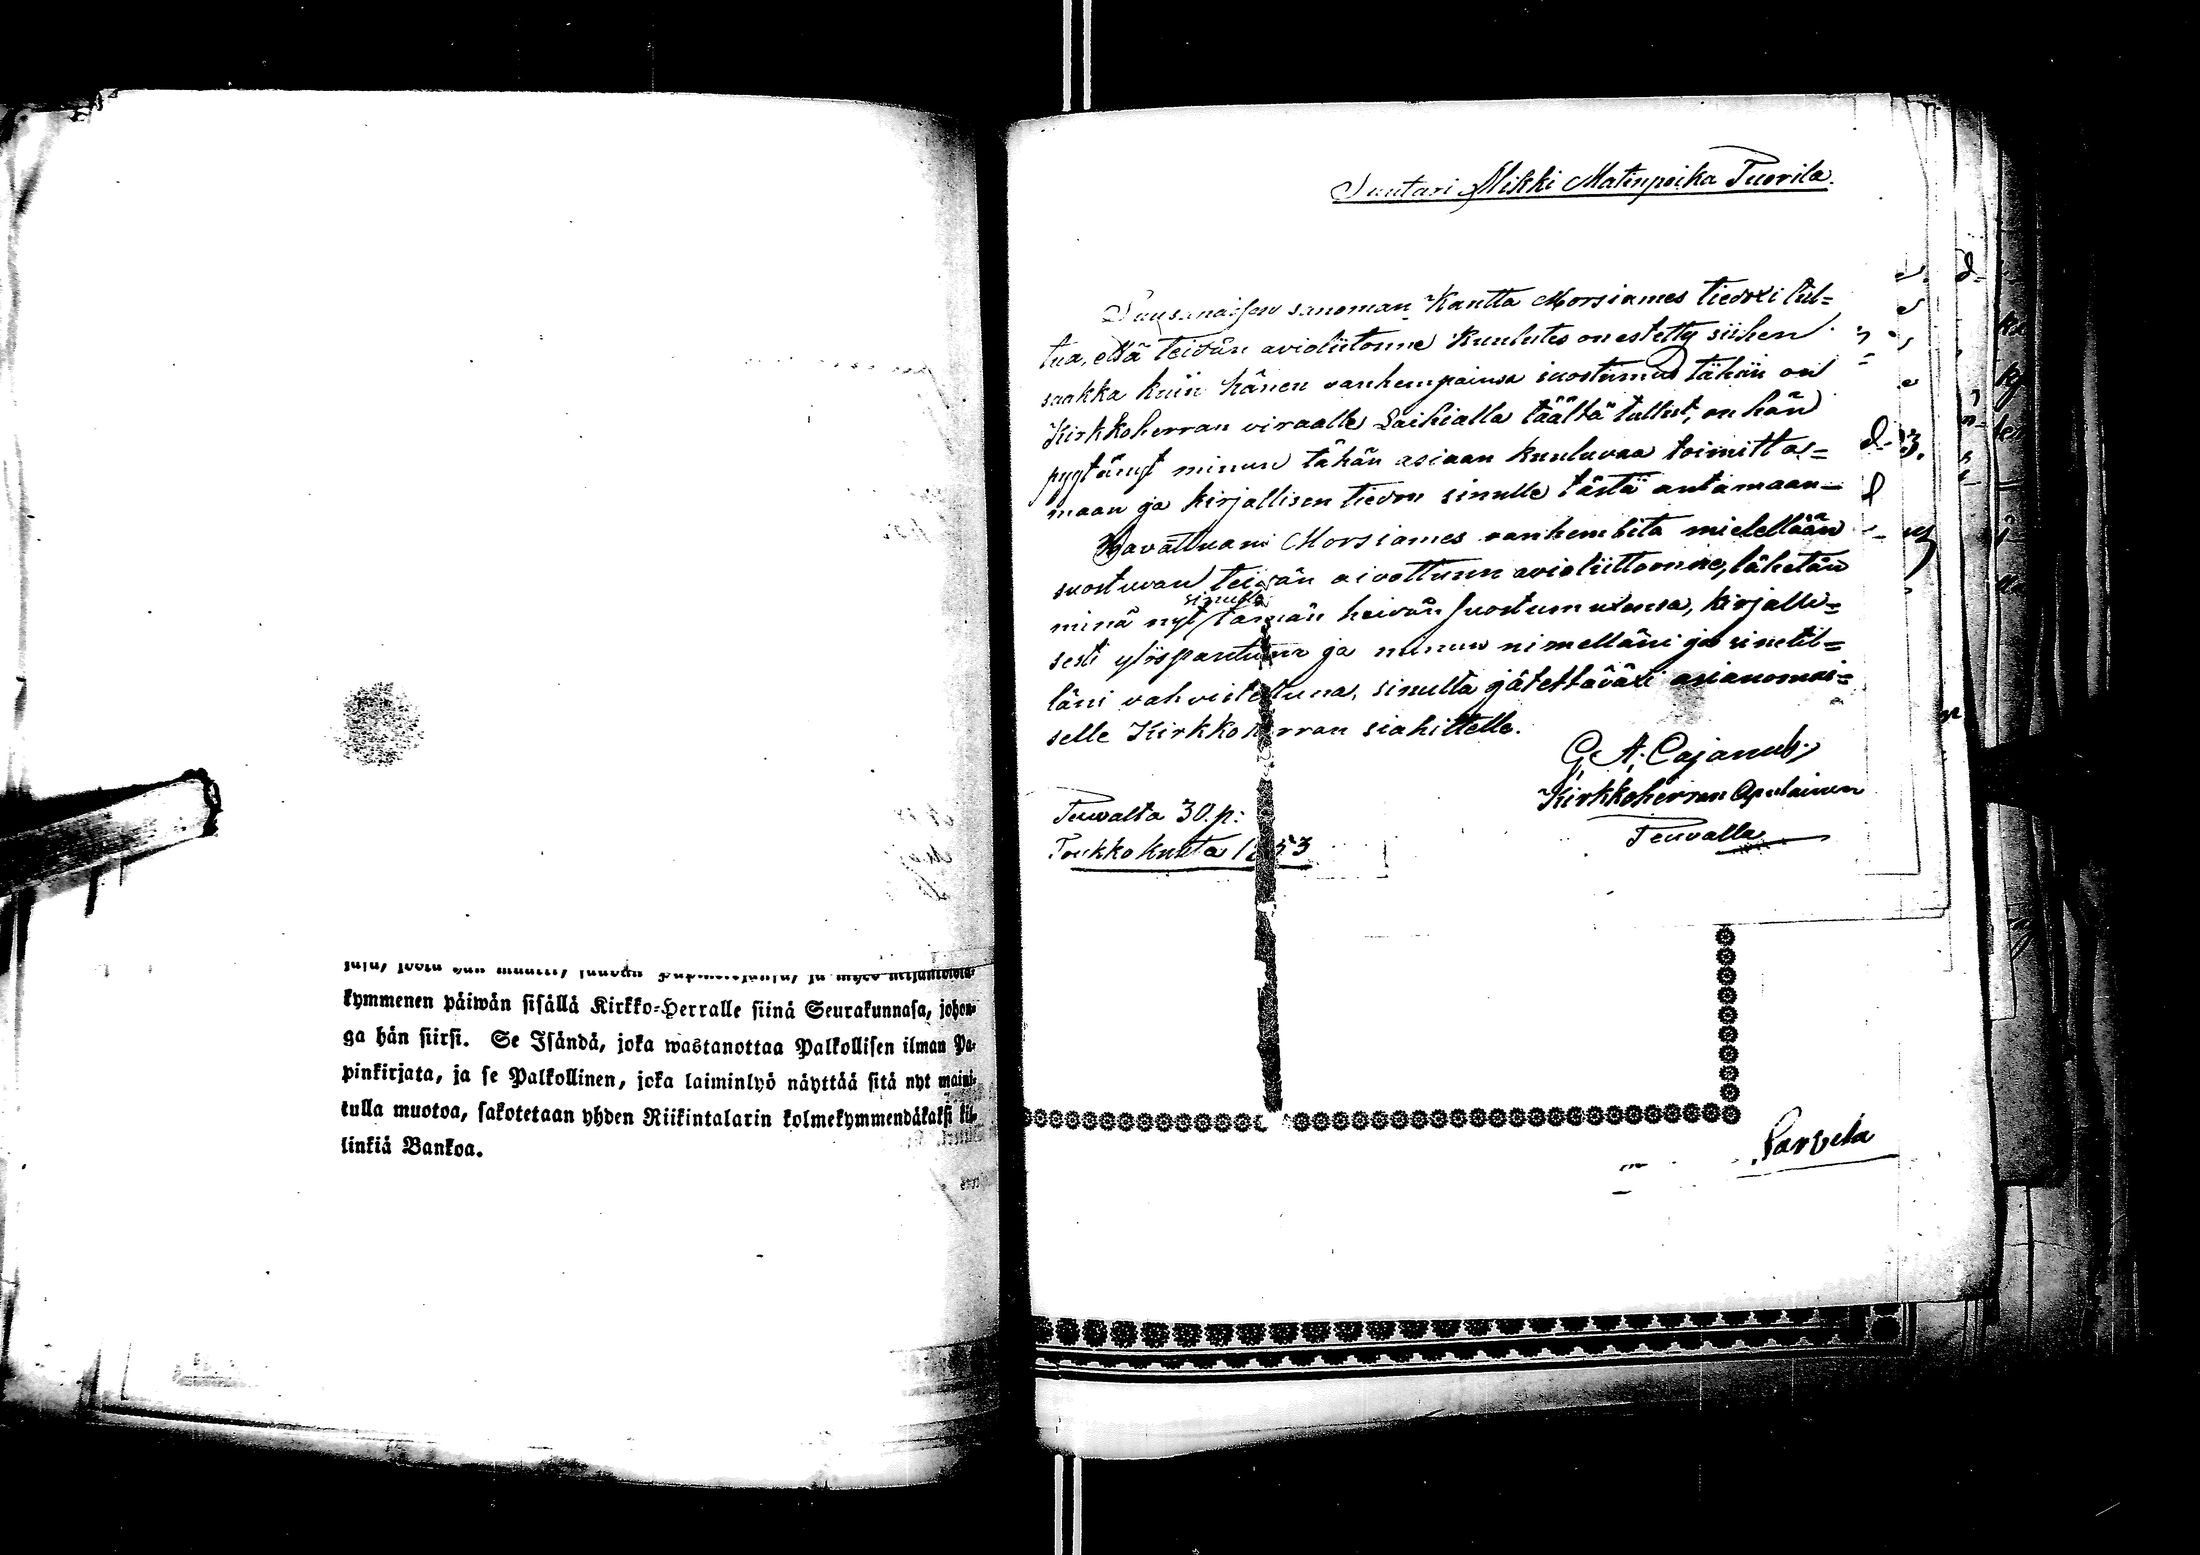 kymmenen päiwän sisällä Kirkko-Herralle siinä Seurakunnasa, johon-
ga hän siirsi. Se Isändä, joka wastanottaa Palkollisen ilman Pa-
pinkirjata, ja se Palkollinen, joka laiminlyö näyttää sitä nyt maini-
tulla muotoa, sakotetaan yhden Riikintalarin kolmekymmendäkaksi kil-
linkiä Bankoa.
Suutari Mikki Matinpoika Tuorila.
Suusanaisen sanoman kautta Morsiames tiedoxi tul=
tua, että teidän avioliitonne kuulutes on estetty siihen
saakka kuin hänen vanhempainsa suostumus tähän on
Kirkkoherran viraalle Laihialla täältä tullut, on hän
pyytänyt minun tähän asiaan kuuluvaa toimittas=
maan ja kirjallisen tiedon sinulle tästä antamaan—
Havattuani Morsiames vanhembita mielellään
suostuvan teidän aivottunn avioliittoonne, lähetän
minä nyt sinulle tämän heidän suostumuxensa, kirjalli=
sesti ja minun nimelläni ja sinetil=
läni vahvistettuna, sinulta jätettäväxi asianomai=
selle Kirkkoherran siahittelle.
G. A. Cajanus,
Kirkkoherran Apulainen
Teuvalla
Teuvalta 30. p:
Toukko kuuta 1853
Parvela